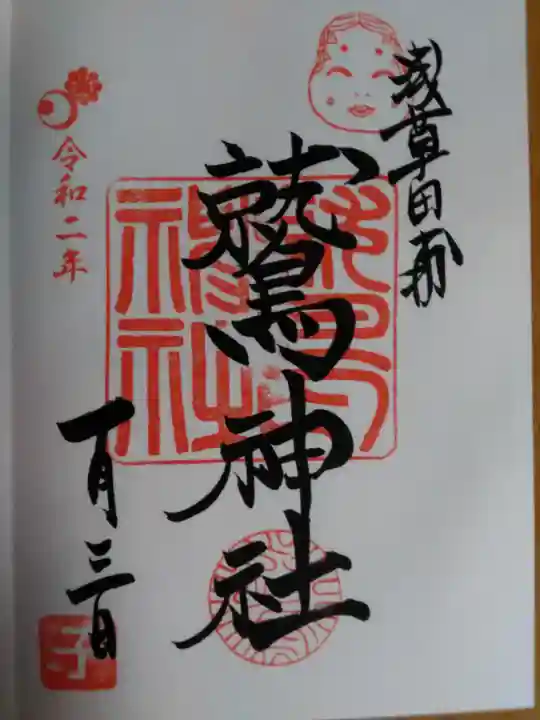 浅草田甫
鷲神社
令和二年
一月三日
子